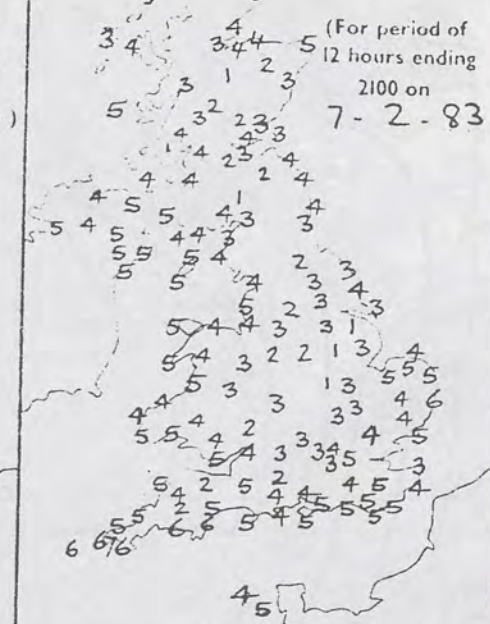 (For period of
12 hours ending
2100 on
7 - 2 - 83
3 4 4
3 4 4 5
1 2
3 3
5 3 2
2 3
4 4 3
4 2 3 4
4 4 2 4
4 5 1
5 4 5 5 4 3 4
5 4 4 3 3
5 5 5 4
5 5
2 3
4 3 4
5 2 3 3
5 4 4 3 3 1
5 4 3 2 2 1 3 4
5 5 5 5
5 3 1 3 4 6
4 4 3 3 3 4
5 5 4 4 2 4 5
5 4 3 3 3 4 5 3
3
5 4 2 5 2 4 5 4
4 4
5 5 2 5 5 4 5 5 5 5
6 6 6 6 6 5 5 5
4
5